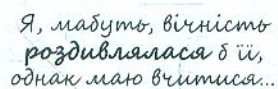 Я, мабуть, вічність
роздивлялася б її,
однак маю вчитися...